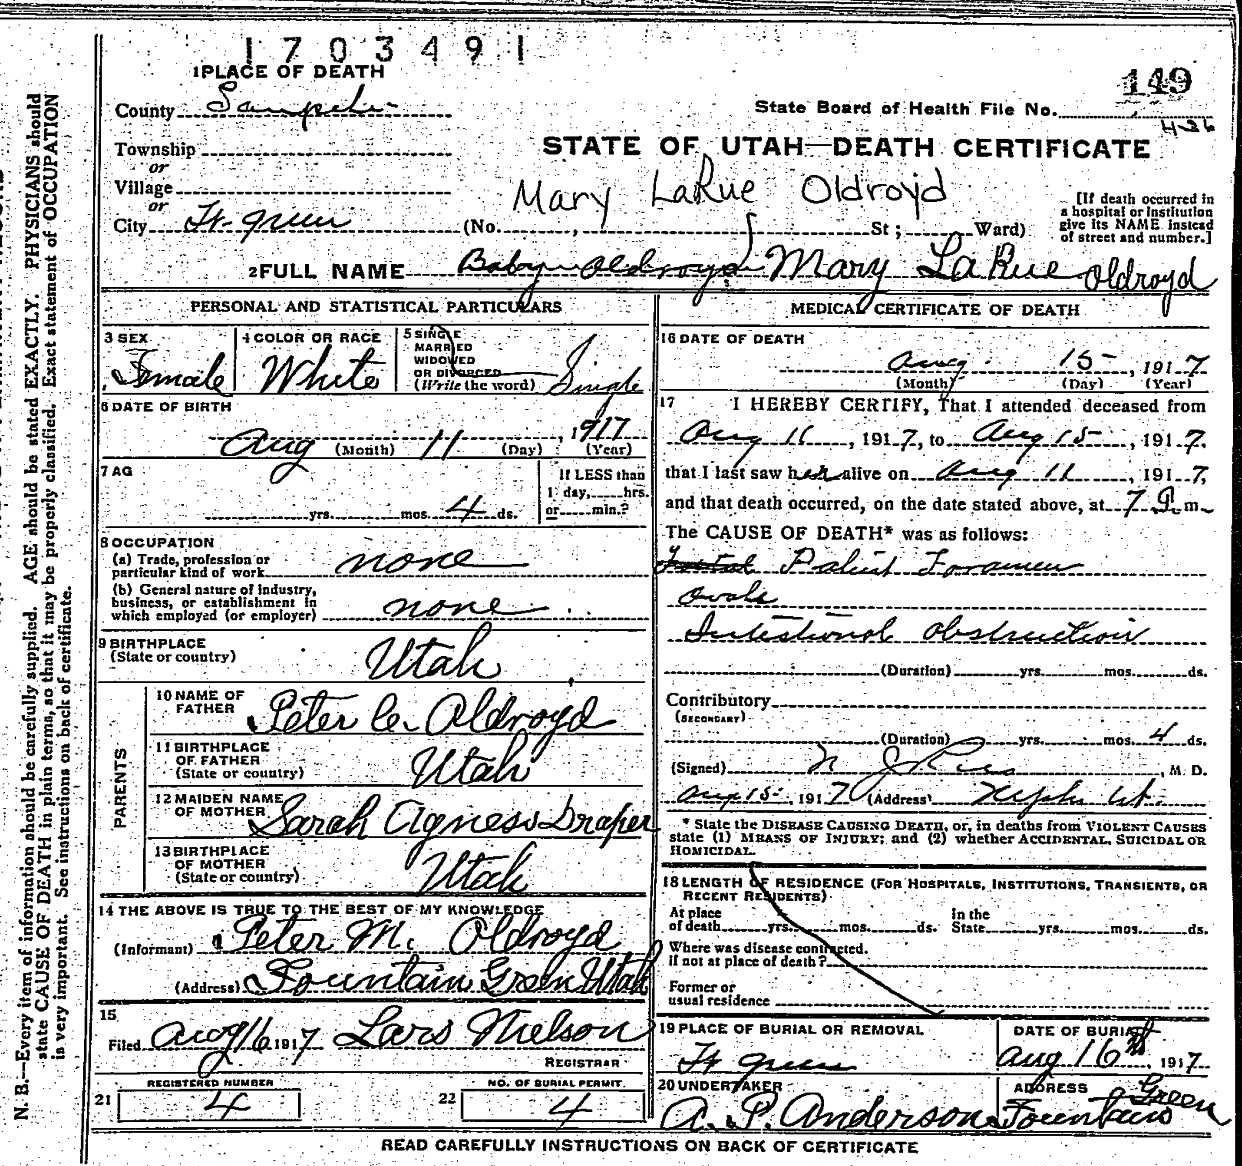 1703491
1 PLACE OF DEATH
149
County Sanpete
State Board of Health File No.
Township
STATE OF UTAH—DEATH CERTIFICATE
or
Village
Mary LaRue Oldroyd
or
City Ft. green (No. , St ; Ward)
[If death occurred in
a hospital or institution
give its NAME instead
of street and number.]
2 FULL NAME Baby Oldroyd Mary LaRue Oldroyd
PERSONAL AND STATISTICAL PARTICULARS
3 SEX
Female
4 COLOR OR RACE
White
5 SINGLE
MARRIED
WIDOWED
OR DIVORCED
(Write the word) Single
6 DATE OF BIRTH
Aug (Month) 11 (Day) , 1917 (Year)
7 AG
yrs. mos. 4 ds.
If LESS than
1 day, hrs.
or min.?
8 OCCUPATION
(a) Trade, profession or
particular kind of work none
(b) General nature of industry,
business, or establishment in
which employed (or employer) none
9 BIRTHPLACE
(State or country) Utah
PARENTS
10 NAME OF
FATHER Peter C. Oldroyd
11 BIRTHPLACE
OF FATHER
(State or country) Utah
12 MAIDEN NAME
OF MOTHER Sarah Agness Draper
13 BIRTHPLACE
OF MOTHER
(State or country) Utah
14 THE ABOVE IS TRUE TO THE BEST OF MY KNOWLEDGE
(Informant) Peter M. Oldroyd
(Address) Fountain Green Utah
15
Filed Aug 16 1917 Lars Nielson
REGISTRAR
REGISTERED NUMBER
21 4
NO. OF BURIAL PERMIT.
22 4
MEDICAL CERTIFICATE OF DEATH
16 DATE OF DEATH
Aug. 15 , 1917
(Month) (Day) (Year)
17 I HEREBY CERTIFY, That I attended deceased from
Aug 11 , 1917, to Aug 15 , 1917,
that I last saw her alive on Aug 11 , 1917,
and that death occurred, on the date stated above, at 7 m.
The CAUSE OF DEATH* was as follows:
Patent Foramen
Ovale
Intestional obstruction
(Duration) yrs. mos. ds.
Contributory
(SECONDARY)
(Duration) yrs. mos. 4 ds.
(Signed) , M. D.
Aug 15 , 1917 (Address) Nephi Ut.
* State the DISEASE CAUSING DEATH, or, in deaths from VIOLENT CAUSES
state (1) MEANS OF INJURY; and (2) whether ACCIDENTAL, SUICIDAL OR
HOMICIDAL.
18 LENGTH OF RESIDENCE (FOR HOSPITALS, INSTITUTIONS, TRANSIENTS, OR
RECENT RESIDENTS)
At place
of death yrs. mos. ds.
In the
State yrs. mos. ds.
Where was disease contracted.
if not at place of death?
Former or
usual residence
19 PLACE OF BURIAL OR REMOVAL
Ft green
DATE OF BURIAL
Aug 16th , 1917
20 UNDERTAKER
A. P. Anderson
ADDRESS
Fountain Green
READ CAREFULLY INSTRUCTIONS ON BACK OF CERTIFICATE
N. B.—Every item of information should be carefully supplied. AGE should be stated EXACTLY. PHYSICIANS should
state CAUSE OF DEATH in plain terms, so that it may be properly classified. Exact statement of OCCUPATION
is very important. See instructions on back of certificate.